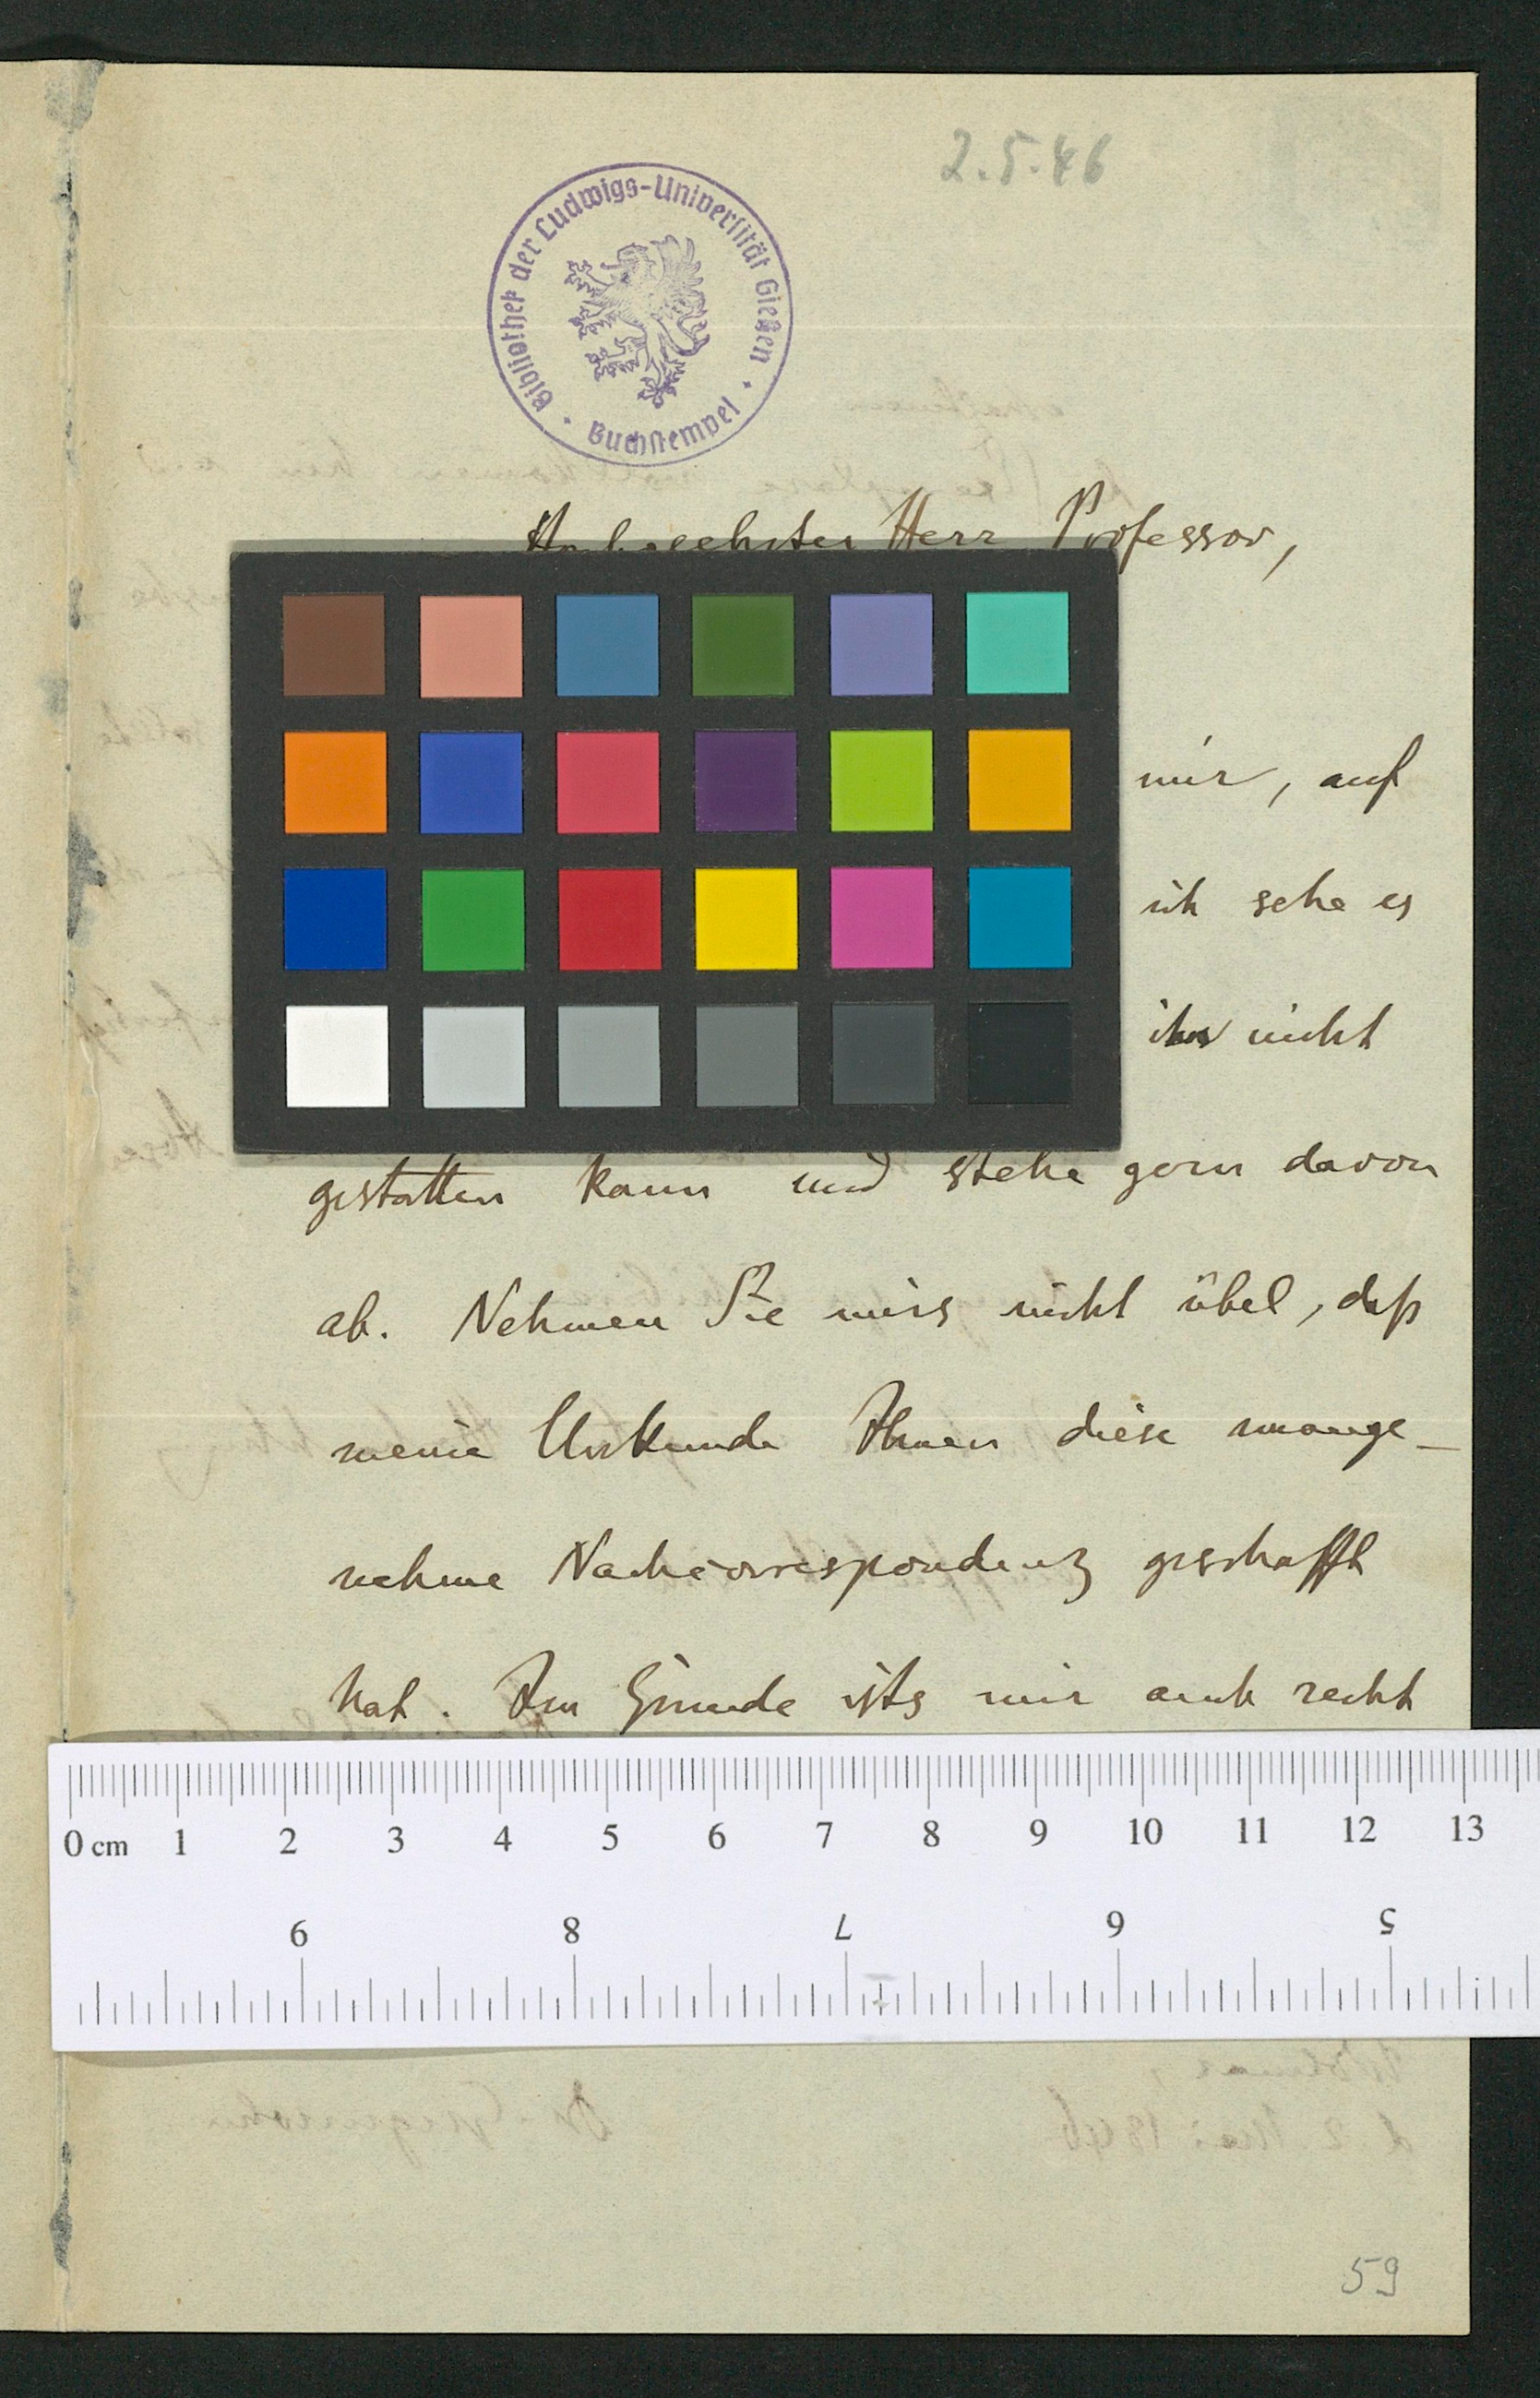 2.5.46
Bibliothek der Ludwigs-Universität Gießen · Buchstempel ·
Herr Professor,
mir, auf
ich sehe es
nicht
gestatten kann und stehe gern davon
ab. Nehmen Sie mirs nicht übel, daß
meine Urkunde Ihnen diese unange-
nehme Nachcorrespondenz geschafft
hat. Im Grunde ists mir auch recht
0 cm 1 2 3 4 5 6 7 8 9 10 11 12 13
9 8 7 6 5
59